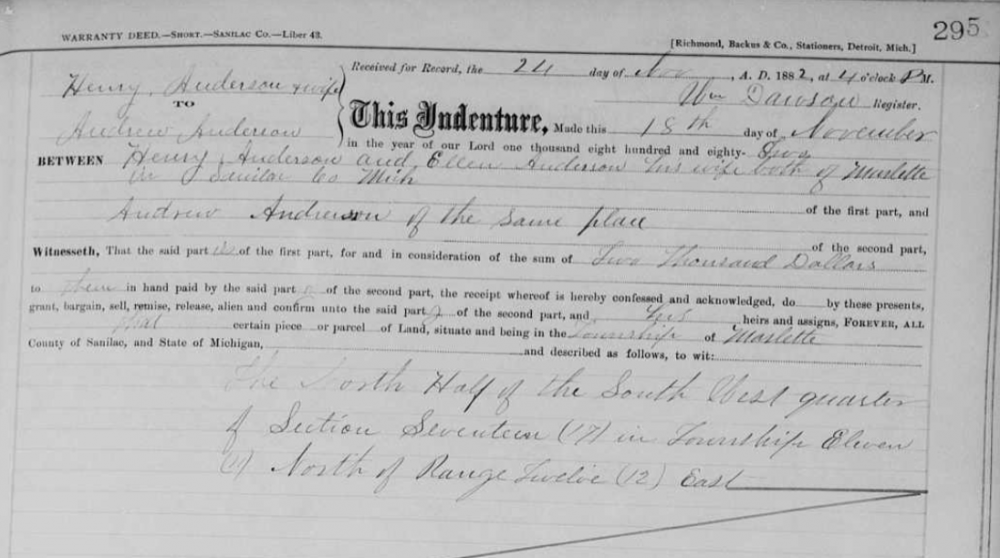 295
WARRANTY DEED.—SHORT.—SANILAC CO.—Liber 43.
[Richmond, Backus & Co., Stationers, Detroit, Mich.]
Henry Anderson & wife
TO
Andrew Anderson
Received for Record, the 24 day of Nov, A. D. 1882, at 4 o'clock P M.
Wm Dawson Register.
This Indenture, Made this 18th day of November
in the year of our Lord one thousand eight hundred and eighty- Two
BETWEEN Henry Anderson and Ellen Anderson his wife both of Marlette
in Sanilac Co Mich
of the first part, and
Andrew Anderson of the same place
of the second part,
Witnesseth, That the said part ies of the first part, for and in consideration of the sum of Two Thousand Dollars
to them in hand paid by the said part y of the second part, the receipt whereof is hereby confessed and acknowledged, do by these presents,
grant, bargain, sell, remise, release, alien and confirm unto the said part y of the second part, and his heirs and assigns, FOREVER, ALL
that certain piece or parcel of Land, situate and being in the Township of Marlette
County of Sanilac, and State of Michigan, and described as follows, to wit:
The North Half of the South West quarter
of Section Seventeen (17) in Township Eleven
(11) North of Range Twelve (12) East